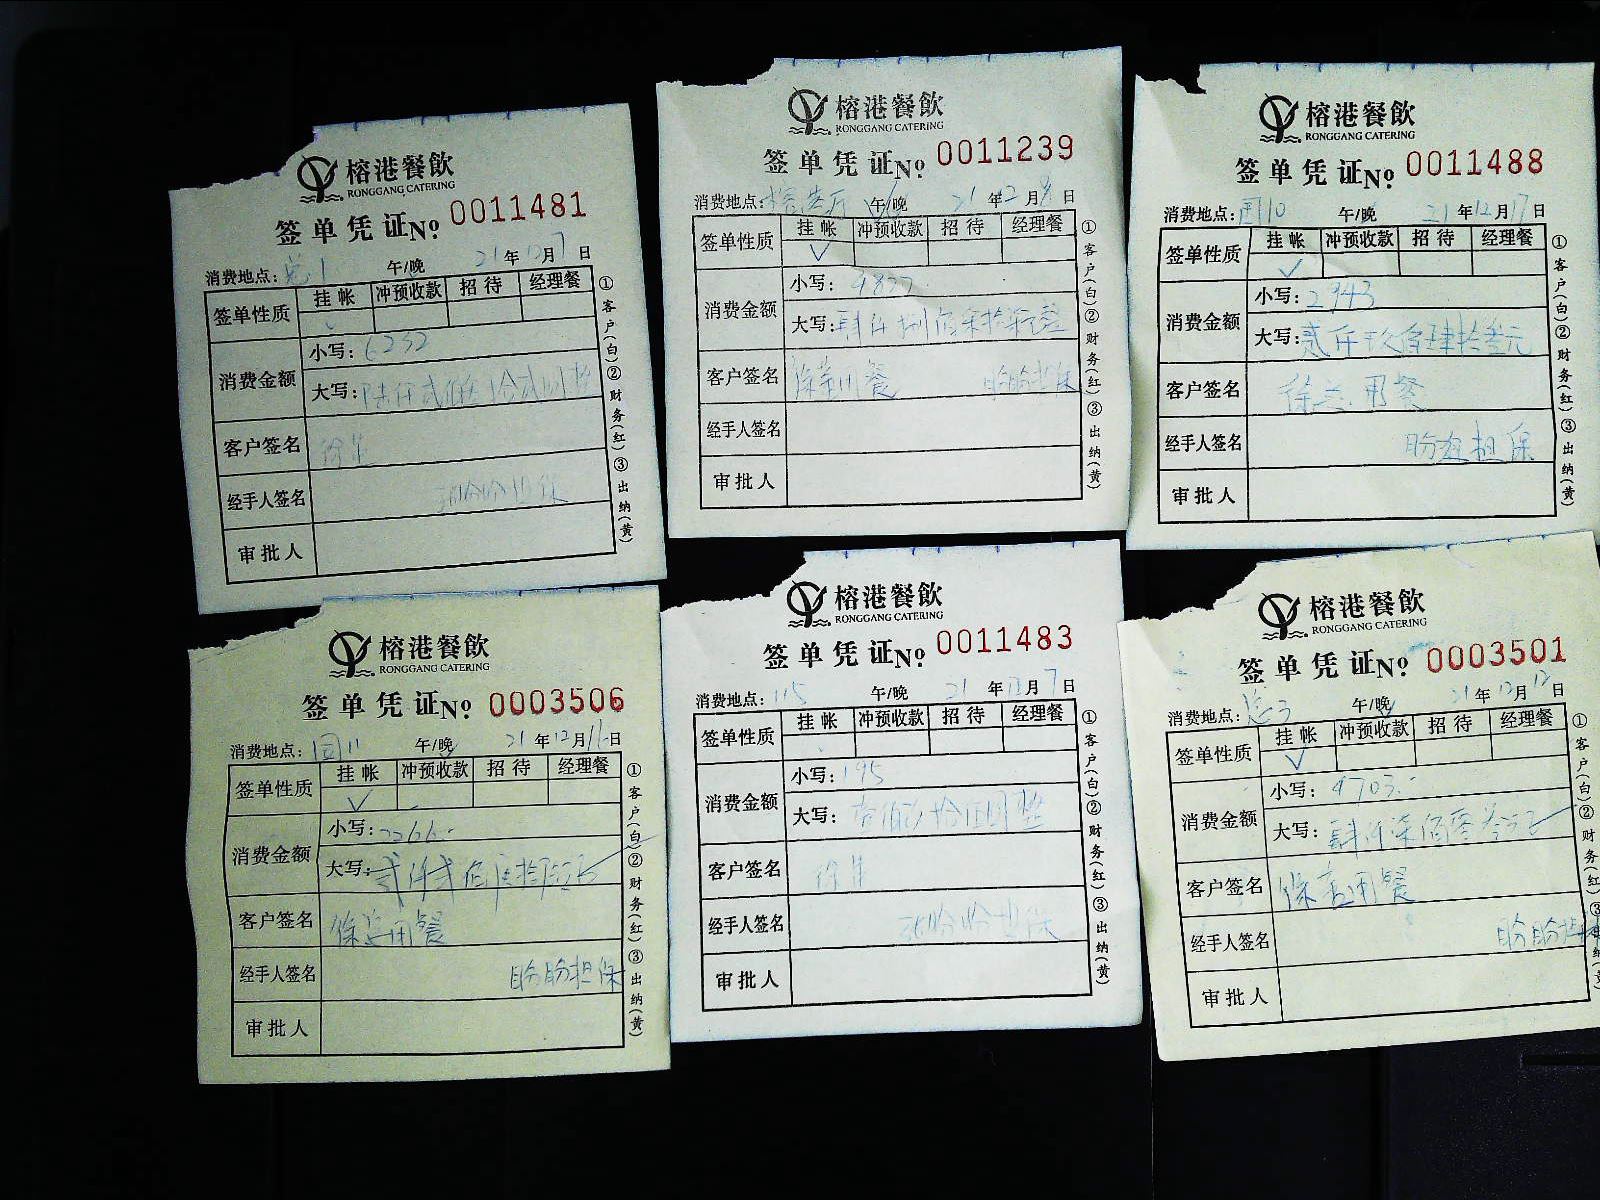 榕港餐飲
RONGGANG CATERING
签单凭证No. 0011481
消费地点: 1 午/晚 21年12月7日
签单性质 挂帐 冲预收款 招待 经理餐
消费金额 小写: 6232
大写: 陆仟贰佰
客户签名
经手人签名 担保
审批人
①客户(白)②财务(红)③出纳(黄)
榕港餐飲
RONGGANG CATERING
签单凭证No. 0011239
消费地点: 榕港厅 午/晚 21年12月8日
签单性质 挂帐 冲预收款 招待 经理餐
✓
消费金额 小写: 4877
大写: 肆仟捌佰柒拾柒元整
客户签名 用餐 盼盼担保
经手人签名
审批人
①客户(白)②财务(红)③出纳(黄)
榕港餐飲
RONGGANG CATERING
签单凭证No. 0011488
消费地点: 10 午/晚 21年12月17日
签单性质 挂帐 冲预收款 招待 经理餐
✓
消费金额 小写: 2943
大写: 贰仟玖佰肆拾叁元
客户签名 徐 用餐
经手人签名 担保
审批人
①客户(白)②财务(红)③出纳(黄)
榕港餐飲
RONGGANG CATERING
签单凭证No. 0003506
消费地点: 11 午/晚 21年12月16日
签单性质 挂帐 冲预收款 招待 经理餐
✓
消费金额 小写: 2266.
大写: 贰仟贰佰陆拾陆元
客户签名 徐 用餐
经手人签名 盼盼担保
审批人
①客户(白)②财务(红)③出纳(黄)
榕港餐飲
RONGGANG CATERING
签单凭证No. 0011483
消费地点: 115 午/晚 21年12月7日
签单性质 挂帐 冲预收款 招待 经理餐
消费金额 小写: 195
大写: 壹佰玖拾伍圆整
客户签名
经手人签名 盼盼担保
审批人
①客户(白)②财务(红)③出纳(黄)
榕港餐飲
RONGGANG CATERING
签单凭证No. 0003501
消费地点: 总3 午/晚 21年12月12日
签单性质 挂帐 冲预收款 招待 经理餐
✓
消费金额 小写: 4703.
大写: 肆仟柒佰零叁元
客户签名 徐 用餐
经手人签名 盼盼担
审批人
①客户(白)②财务(红)③出纳(黄)